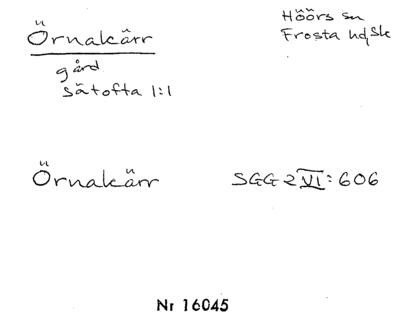 Örnakärr
Höörs sn
Frosta hd Sk
gård
Sätofta 1:1
Örnakärr
SGG 2 VI: 606
Nr 16045